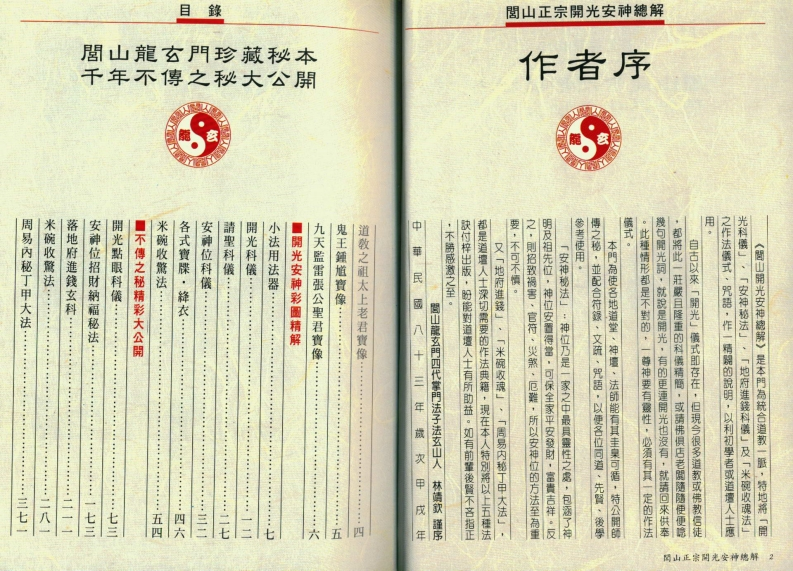 閭山正宗開光安神總解
作者序
龍 玄
《閭山開光安神總解》是本門為統合道教一脈，特地將「開
光科儀」、「安神秘法」、「地府進錢科儀」及「米碗收魂法」
之作法儀式、咒語，作一精闢的說明，以利初學者或道壇人士應
用。
自古以來「開光」儀式即存在，但現今很多道教或佛教信徒
，都將此一莊嚴且隆重的科儀精簡，或請佛俱店老闆隨隨便便認
幾句開光詞，就說是開光，有的更連開光也沒有，就請回來供奉
。此種情形都是不對的，一尊神要有靈性，必須有其一定的作法
儀式。
本門為使各地道堂、神壇、法師能有其圭臬可循，特公開師
傳之秘，並配合符錄、文疏、咒語，以便各位同道、先賢、後學
參考使用。
「安神秘法」：神位乃是一家之中最具靈性之處，包涵了神
明及祖先位，神位安置得當，可保全家平安發財，富貴吉祥。反
之，則招致禍害、官符、災煞、厄難，所以安神位的方法至為重
要，不可不慎。
又「地府進錢」、「米碗收魂」、「周易內秘丁甲大法」，
都是道壇人士深切需要的作法典籍，現在本人特別將以上五種法
訣付梓出版，盼能對道壇人士有所助益。如有前輩後賢不吝指正
，不勝感激之至。
閭山龍玄門四代掌門法子法玄山人　林靖欽　謹序
中華民國八十三年歲次甲戌年
閭山正宗開光安神總解 2
目錄
閭山龍玄門珍藏秘本
千年不傳之秘大公開
龍 玄
道教之祖太上老君寶像……四
鬼王鍾馗寶像……五
九天監雷張公聖君寶像……六
■開光安神彩圖精解
小法用法器……七
開光科儀……一二
請聖科儀……二二
安神位科儀……三二
各式寶牒・絳衣……四六
米碗收驚法……五四
■不傳之秘精彩大公開
開光點眼科儀……七三
安神位招財納福秘法……一七三
落地府進錢玄科……二一一
米碗收驚法……二八一
周易內秘丁甲大法……三七一